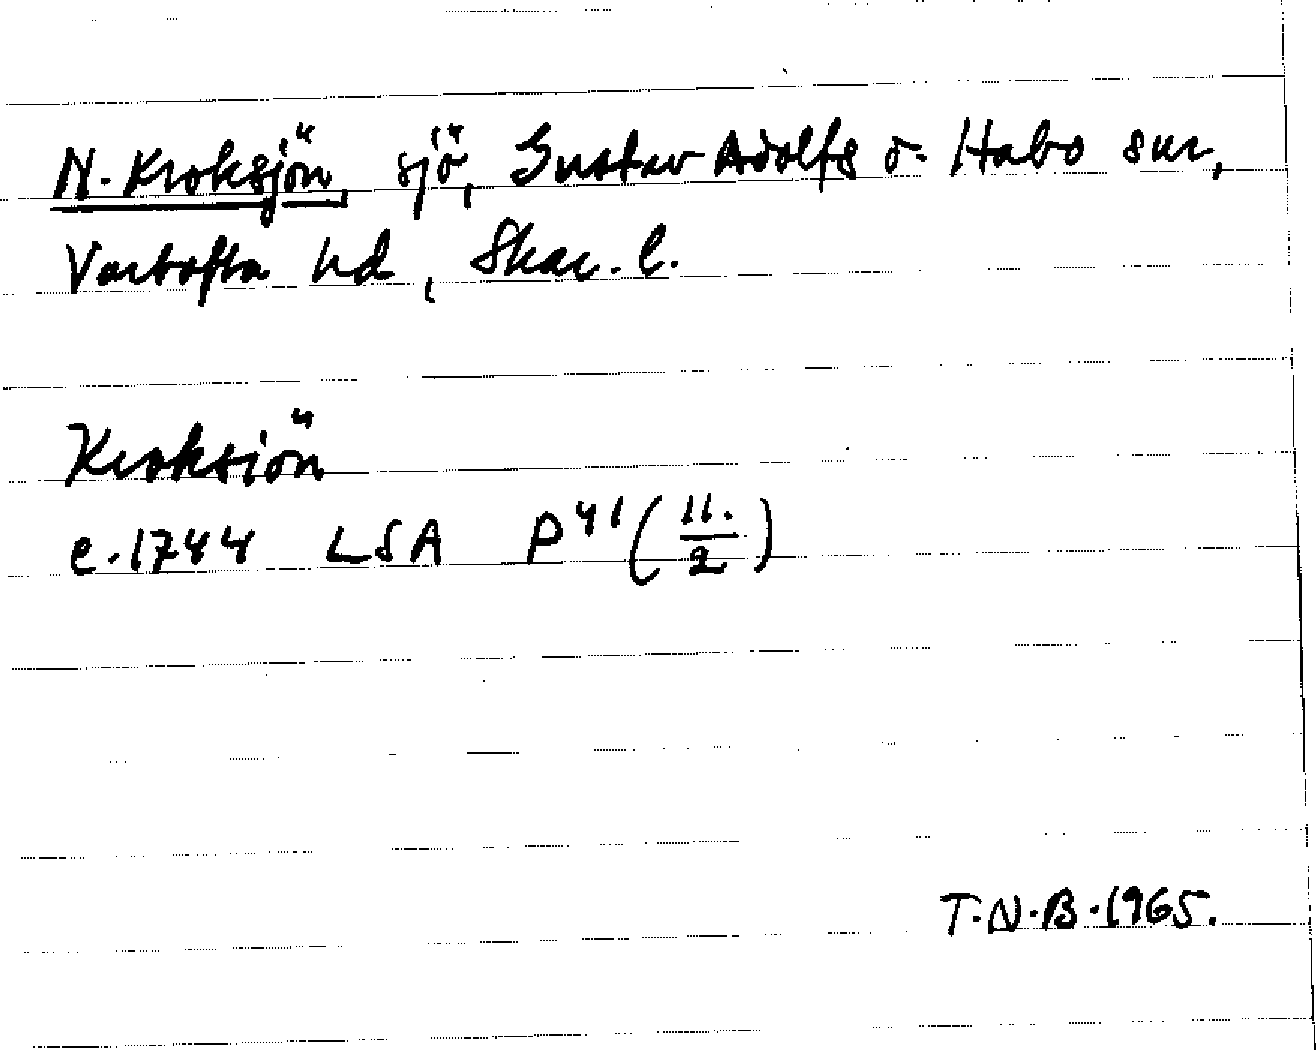 N. Kroksjön, sjö, Gustav Adolfs o. Habo snr,
Vartofta hd, Skar. l.
Kroksiön
c. 1744 LSA P 41 (11./2)
T.N.B. 1965.